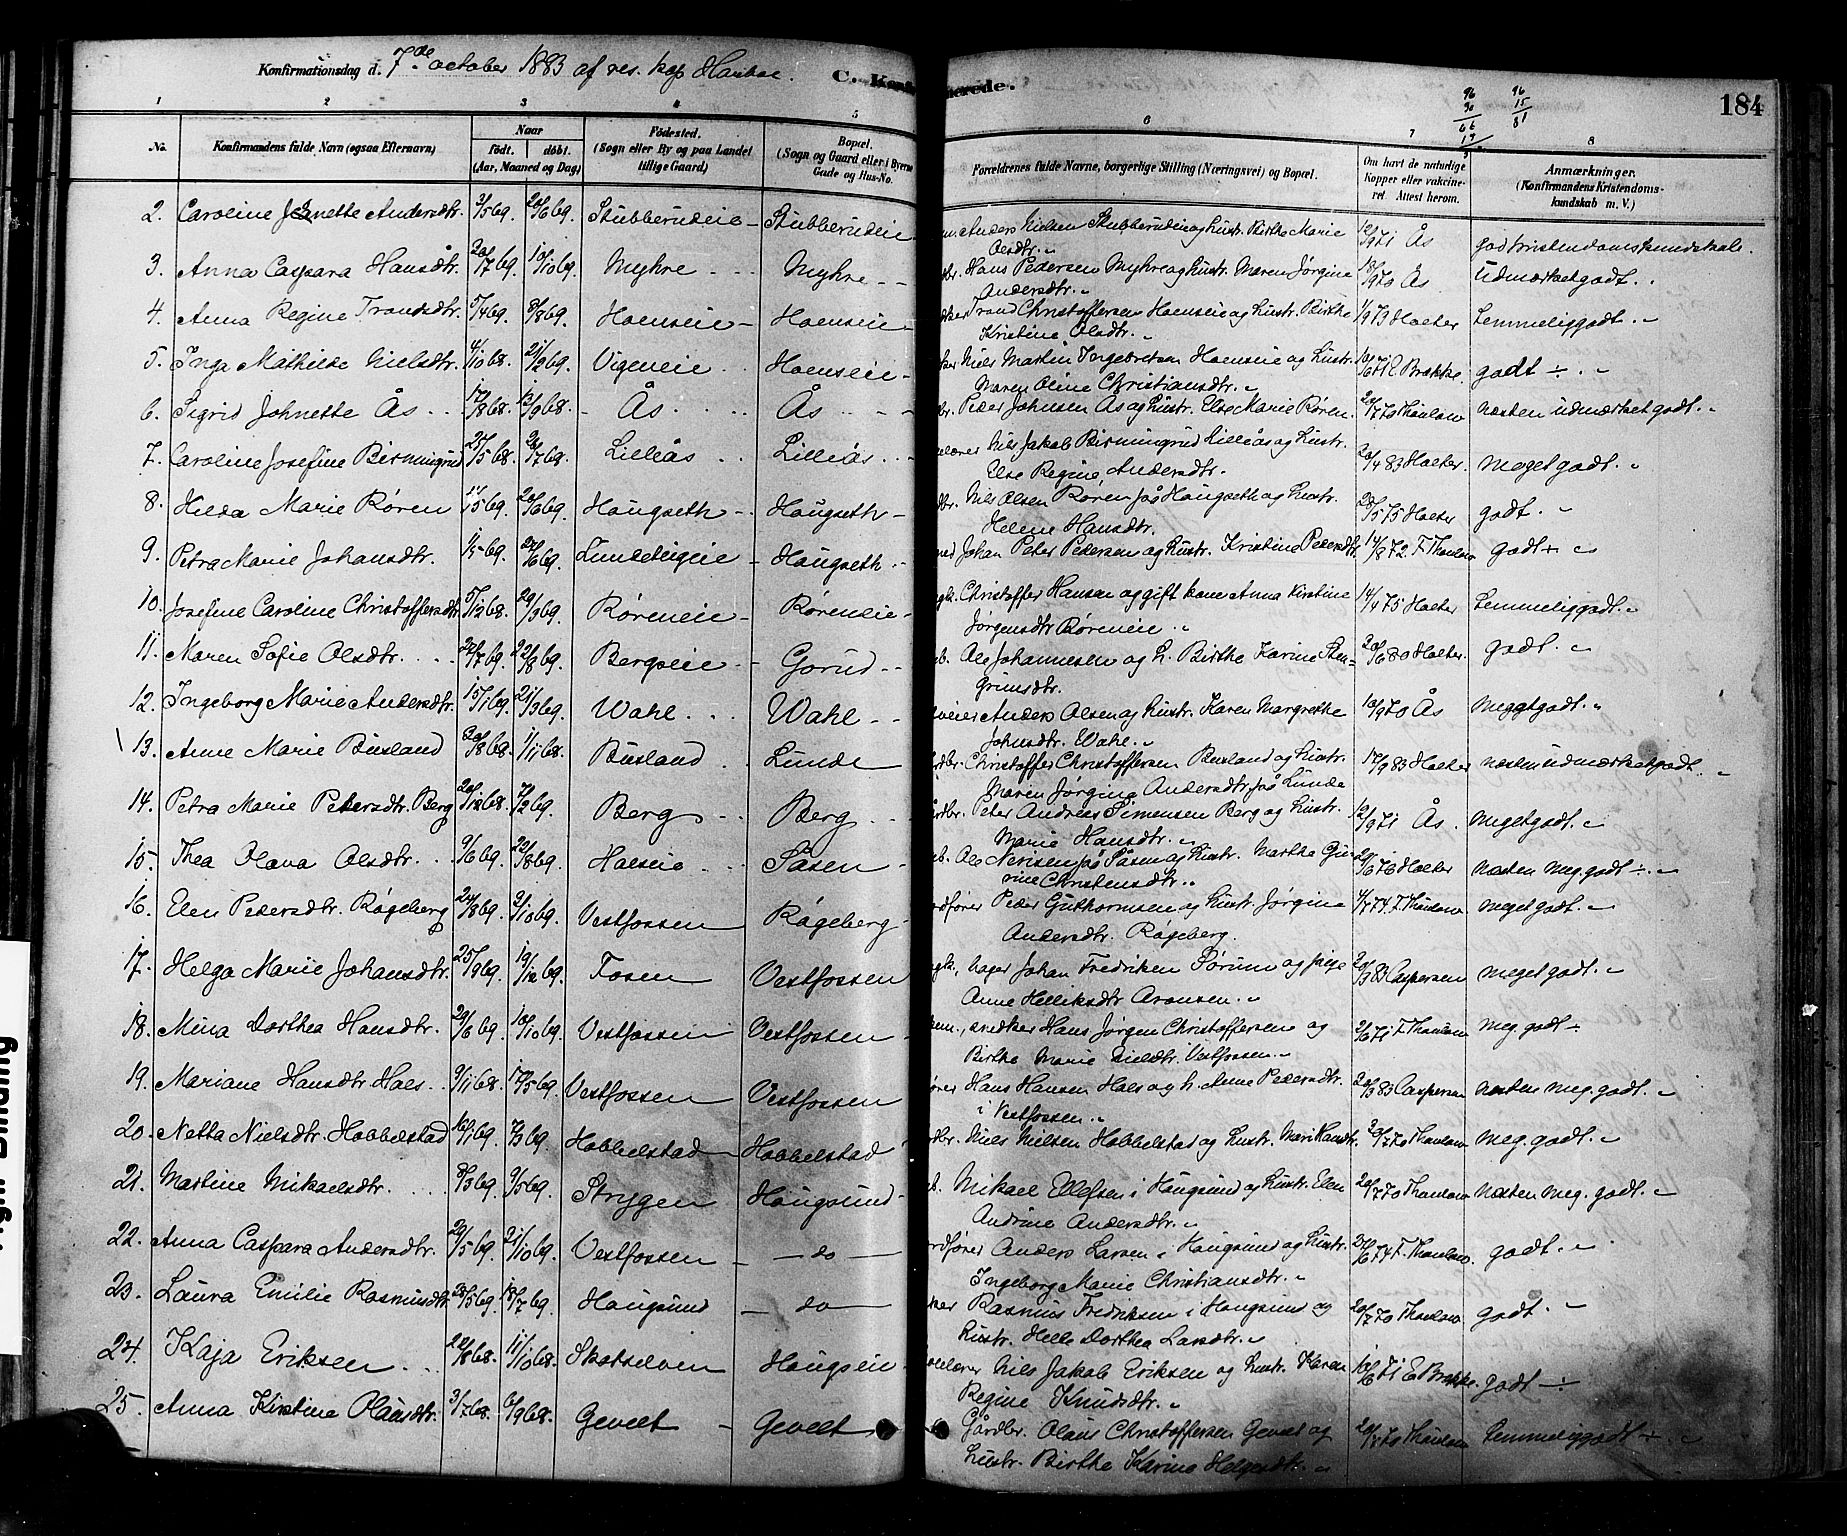 Konfirmationsdag d. 7de october 1883 af res. kap Harboe.
C. Konf
merede.
184
96 96
30 15
66 81
1 2 3 4 5 6 7 8
No. Konfirmandens fulde Navn (ogsaa Efternavn) Naar født. døbt. (Aar, Maaned og Dag) Fødested. (Sogn eller By og paa Landet tillige Gaard) Bopæl. (Sogn og Gaard eller i Byerne Gade og Hus-No. Forældrenes fulde Navne, borgerlige Stilling (Næringsvei) og Bopæl. Om havt de naturlige Kopper eller vakcineret. Attest herom. Anmærkninger. (Konfirmandens Kristendomskundskab m. V.)
2. Caroline Jenette Andersdtr. 3/5 69. 20/6 69. Stubberudeie Stubberudeie Anders Nielsen Stubberudeie og hustr. Birthe Marie
Olsdtr. 10/9 71 Ås god kristendomskundskab.
3. Anna Caspara Hansdtr. 20/7 69. 10/10 69. Myhre Myhre br. Hans Pedersen Myhre og hustr. Maren Jørgine
Andersdtr. 18/9 70 Ås Udmærket godt.
4. Anna Regine Trondsdtr. 5/4 69. 8/8 69. Hoenseie Hoenseie Trond Christoffersen Hoenseie og hustr. Birthe
Kristine Olsdtr. 1/9 73 Holter temmelig godt.
5. Inga Mathilde Nielsdtr. 4/10 68. 21/2 69. Vigeneie Hoenseie Niels Martin Ingebretsen Hoenseie og hustr.
Maren Oline Christiansdtr. 16/6 71 E Brække. godt ÷
6. Sigrid Johnette Ås 17/8 68. 13/9 68. Ås Ås br. Peder Johnsen Ås og hustr. Else Marie Røren. 20/7 70 Thaulow næsten udmærket godt.
7. Caroline Josefine Birmingrud 25/5 68. 26/7 68. Lilleås Lilleås Nils Jakob Birmingrud Lilleås og hustr.
Else Regine Andersdtr. 20/4 83 Holter. meget godt.
8. Hilda Marie Røren 11/5 69. 20/6 69. Haugseth Haugseth dbr. Nils Olsen Røren på Haugseth og hustr.
Helene Hansdtr. 28/5 75 Holter godt.
9. Petra Marie Johansdtr. 1/5 69. 27/6 69. Lundeteigeie Haugseth Johan Peter Pedersen og hustr. Kristine Pedersdtr 14/9 72. F. Thaulow godt +
10. Josefine Caroline Christoffersdtr. 5/12 68. 29/3 69. Røreneie Røreneie Christoffer Hansen og gift kone Anna Kirstine
Jørgensdtr Røreneie 14/4 75 Holter temmelig godt.
11. Maren Sofie Olsdtr. 22/7 69. 22/8 69. Bergseie Gorud Ole Johannesen og h. Birthe Karine Sten-
grimsdtr. 20/6 80 Holter. godt.
12. Ingeborg Marie Andersdtr. 15/1 69. 21/3 69. Wahl Wahl Anders Olsen og hustr. Karen Margrethe
Johnsdtr. Wahl. 10/9 70 Ås meget godt.
13. Anne Marie Busland 30/8 68. 1/11 68. Busland Lunde rdbr. Christoffer Christoffersen Busland og hustr.
Maren Jørgine Andersdtr. på Lunde 17/9 83 Holter næsten udmærket godt.
14. Petra Marie Petersdtr. Berg 20/12 68. 7/2 69. Berg Berg rdbr. Peter Andreas Simensen Berg og hustr.
Marie Hansdtr. 10/9 71 Ås. meget godt.
15. Thea Olava Olsdtr. 9/6 69. 22/8 69. Hoeseie Såsen Ole Nerisen på Såsen og hustr. Marthe Gu-
rine Christensdtr. 20/6 76 Holter næsten meg. godt ÷
16. Elen Pedersdtr. Rågeberg 24/8 69. 3/10 69. Vestfossen Rågeberg rdfører Peder Guthormsen og hustr. Jørgine
Andersdtr. Rågeberg. 4/7 74. F. Thaulow meget godt.
17. Helga Marie Johansdtr. 25/9 69. 19/12 69. Fosen Vestfossen bager Johan Fredriksen Sørum og pige
Anne Helliksdtr Aronsen. 20/9 83 Caspersen meget godt.
18. Mina Dorthea Hansdtr. 20/6 69. 10/10 69. Vestfossen Vestfossen snedker Hans Jørgen Christoffersen og
Birthe Marie Nielsdtr. Vestfossen. 2/6 71 F. Thaulow meg. godt ÷
19. Mariane Hansdtr Hals 9/11 68. 17/5 69. Vestfossen Vestfossen Hans Hansen Hals og h. Anne Pedersdtr.
i Vestfossen. 20/9 83 Caspersen næsten meg. godt
20. Netta Nielsdtr. Hobbelstad 16/1 69. 7/3 69. Hobbelstad Hobbelstad rdbr. Niels Nielsen Hobbelstad og hustr. Mari Hansdtr. 20/7 70 Thaulow meg. godt.
21. Martine Mikaelsdtr. 8/3 69. 9/5 69. Strygen Haugsund Mikael Ellefsen i Haugsund og hustr. Elen
Andrine Andersdtr. 20/7 70 Thaulow næsten meg. godt.
22. Anna Caspara Andersdtr. 20/5 69. 21/10 69. Vestfossen do rdfører Anders Larsen i Haugsund og hustr.
Ingeborg Marie Christiansdtr. 21/6 74 F. Thaulow. godt.
23. Laura Emilie Rasmusdtr. 28/5 69. 18/7 69. Haugsund do Rasmus Fredriksen i Haugsund og
hustr. Helle Dorthea Larsdtr. 20/7 70 Thaulow godt
24. Kaja Eriksen 22/8 68. 11/10 68. Skotselven Haugseie Nils Jakob Eriksen og hustr. Karen
Regine Knudsdtr. 16/6 71 E Brække. godt ÷
25. Anna Kirstine Olausdtr. 3/7 68. 6/9 68. Gevelt Gevelt Gårdbr. Olaus Christoffersen Gevelt og
hustr. Birthe Karine Helgesdtr. 20/7 70 Thaulow temmelig godt +